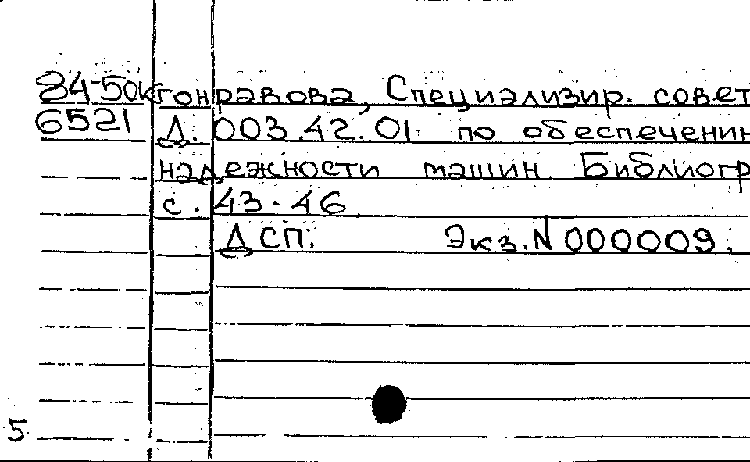 84-50к гонравова, Специализир. совет
6521 Д. 003.42.01 по обеспечени
надежности машин. Библиогр
с. 43-46
ДСП. Экз. N 000009.
5